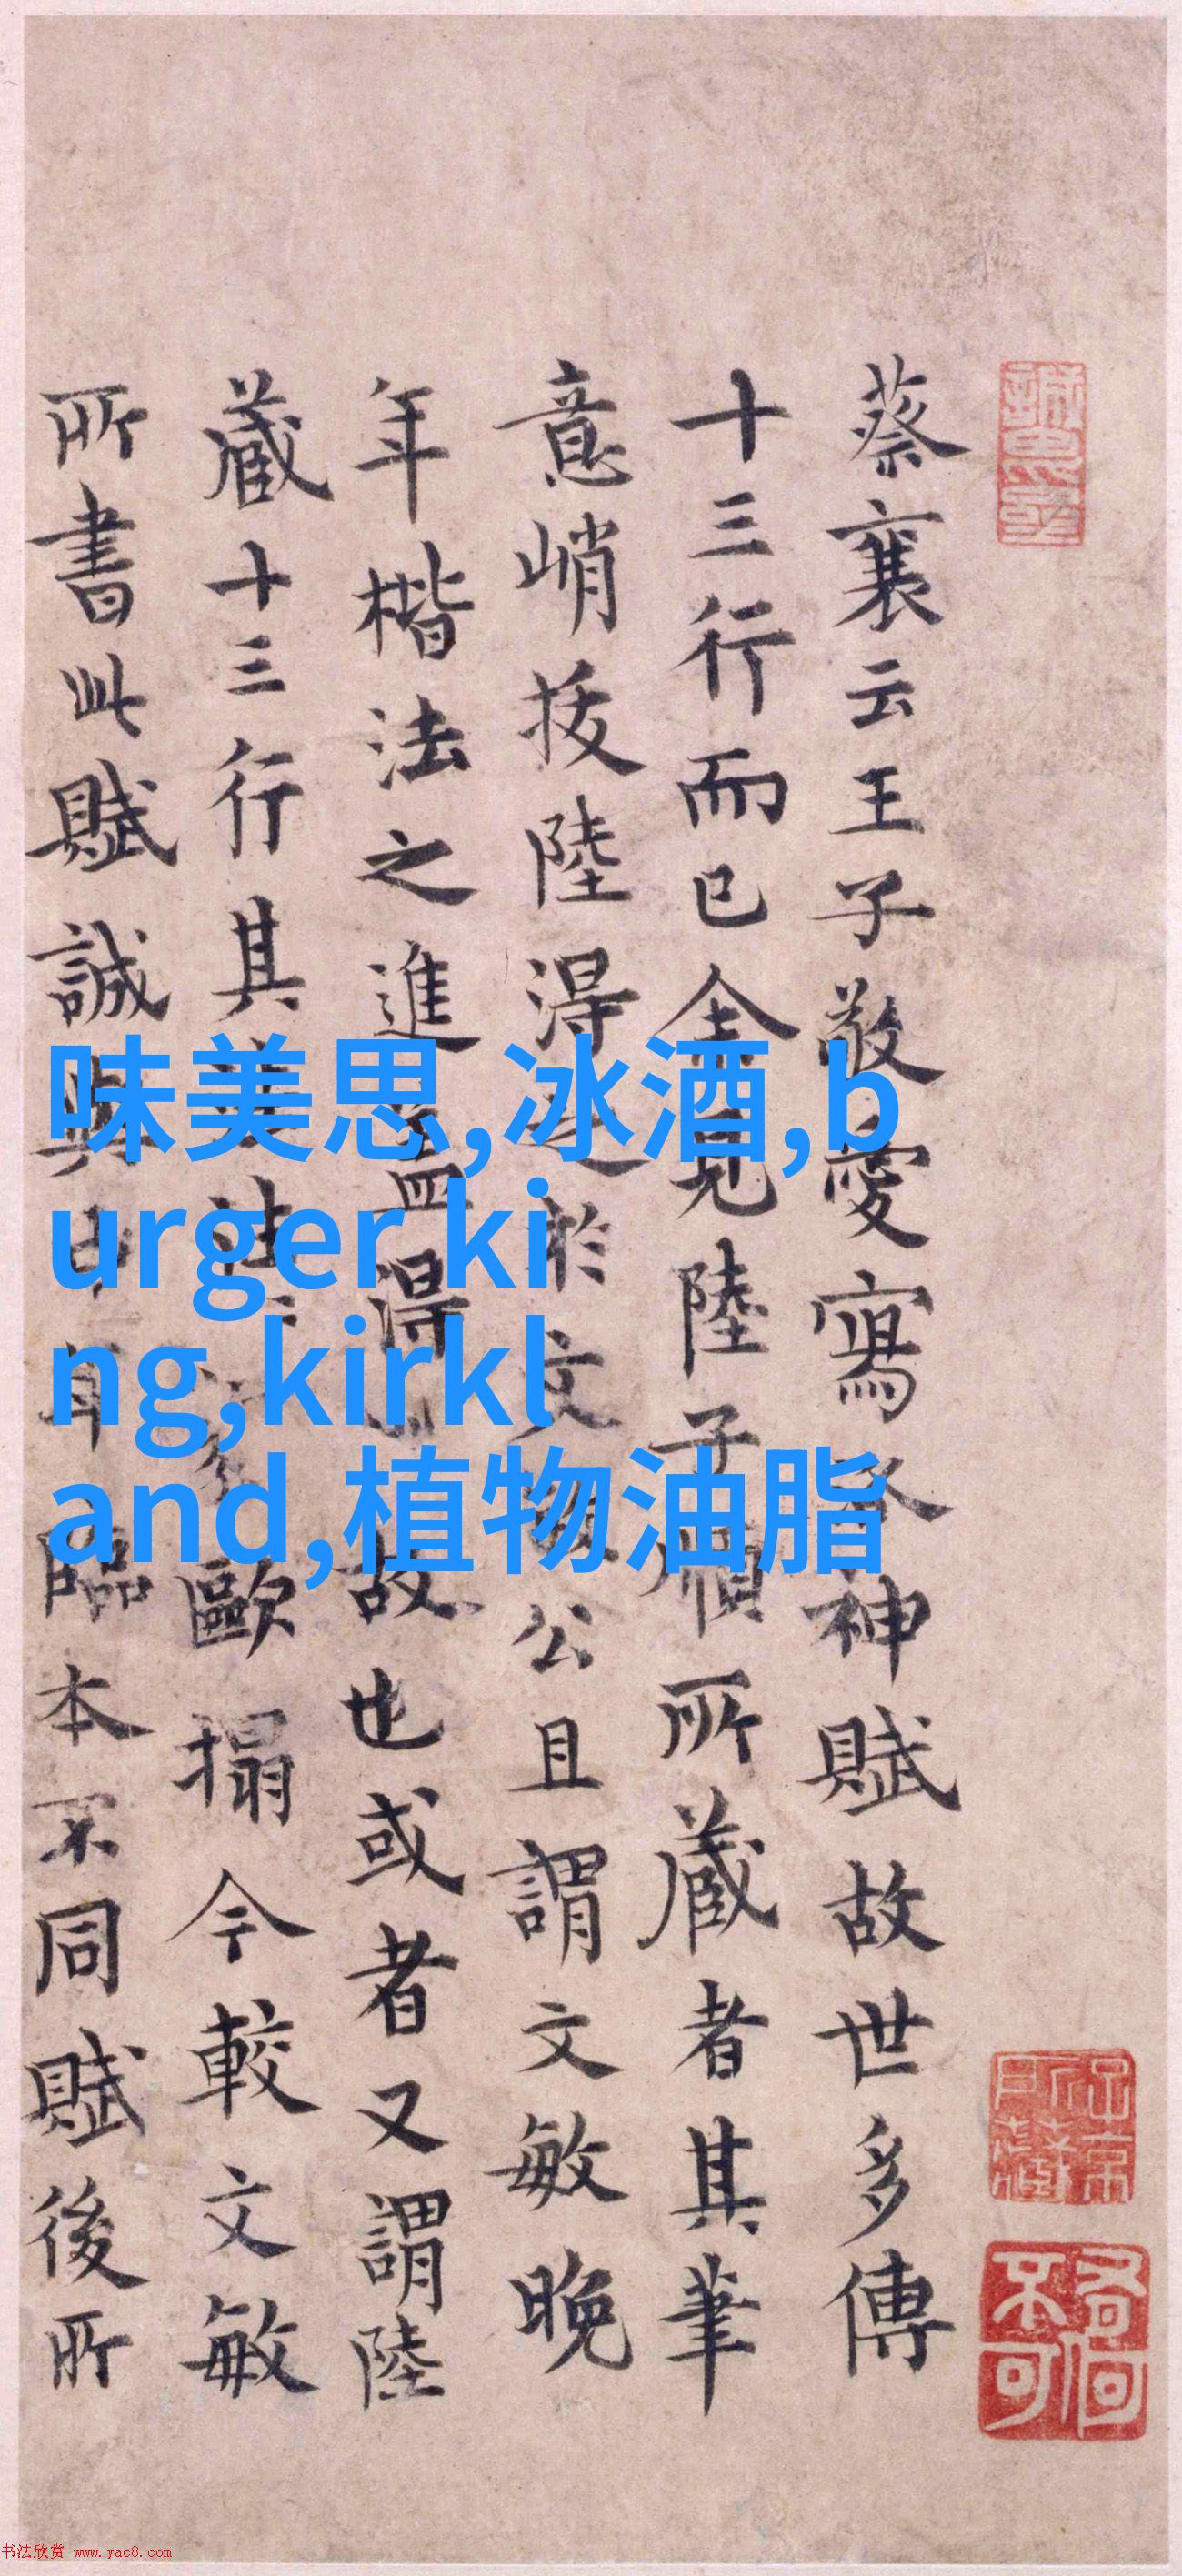 蔡襄云王子敬愛寫洛神賦故世多傳
十三行而已余見陸子順所蔵者其筆
意峭拔陸淂之於文敏公且謂文敏晚
年楷法之進盖淂 故也或者又謂陸
蔵十三行其 法 歐搨今較文敏
所書此賦誠與 臨本不同賦後所
味美思,冰酒,b
urger ki
ng,kirkl
and,植物油脂
不可
书法欣赏 www.yac8.com